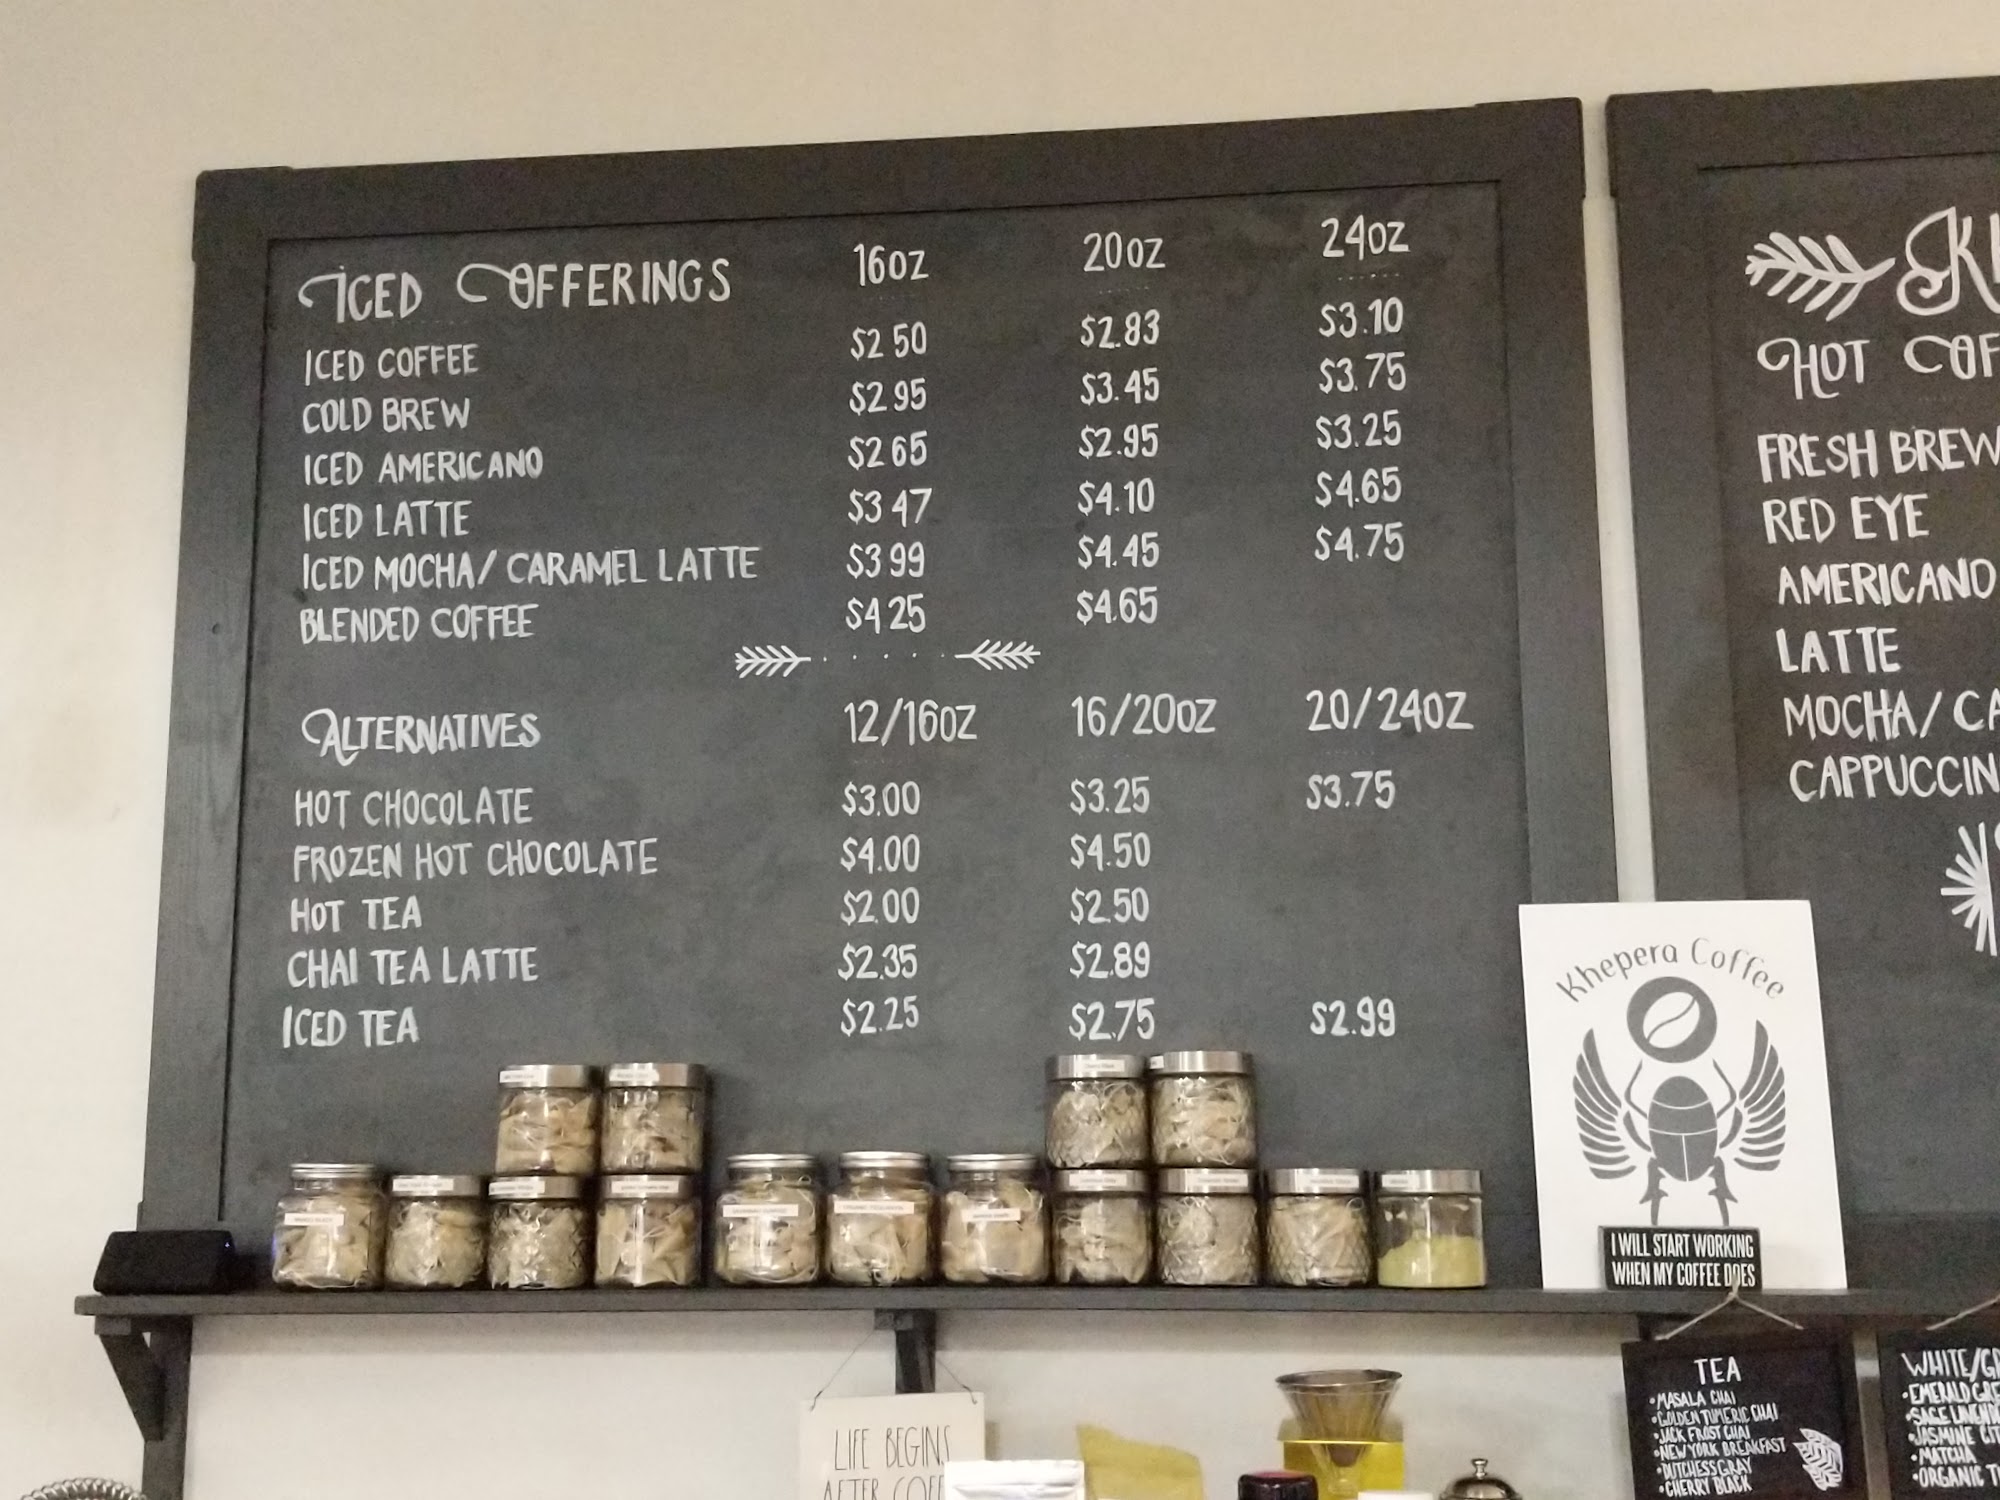 ICED OFFERINGS 16OZ 20OZ 24OZ
ICED COFFEE $2.50 $2.83 $3.10
COLD BREW $2.95 $3.45 $3.75
ICED AMERICANO $2.65 $2.95 $3.25
ICED LATTE $3.47 $4.10 $4.65
ICED MOCHA/ CARAMEL LATTE $3.99 $4.45 $4.75
BLENDED COFFEE $4.25 $4.65
ALTERNATIVES 12/16OZ 16/20OZ 20/24OZ
HOT CHOCOLATE $3.00 $3.25 $3.75
FROZEN HOT CHOCOLATE $4.00 $4.50
HOT TEA $2.00 $2.50
CHAI TEA LATTE $2.35 $2.89
ICED TEA $2.25 $2.75 $2.99
HOT
FRESH BREW
RED EYE
AMERICANO
LATTE
MOCHA/
Khepera Coffee
I WILL START WORKING
WHEN MY COFFEE DOES
TEA
•MASALA CHAI
•GOLDEN TUMERIC CHAI
•JACK FROST CHAI
•NEW YORK BREAKFAST
•DUTCHESS GRAY
•CHERRY BLACK
WHITE/
•EMERALD
•SAGE
•JASMINE
•MATCHA
•ORGANIC
LIFE BEGINS
AFTER